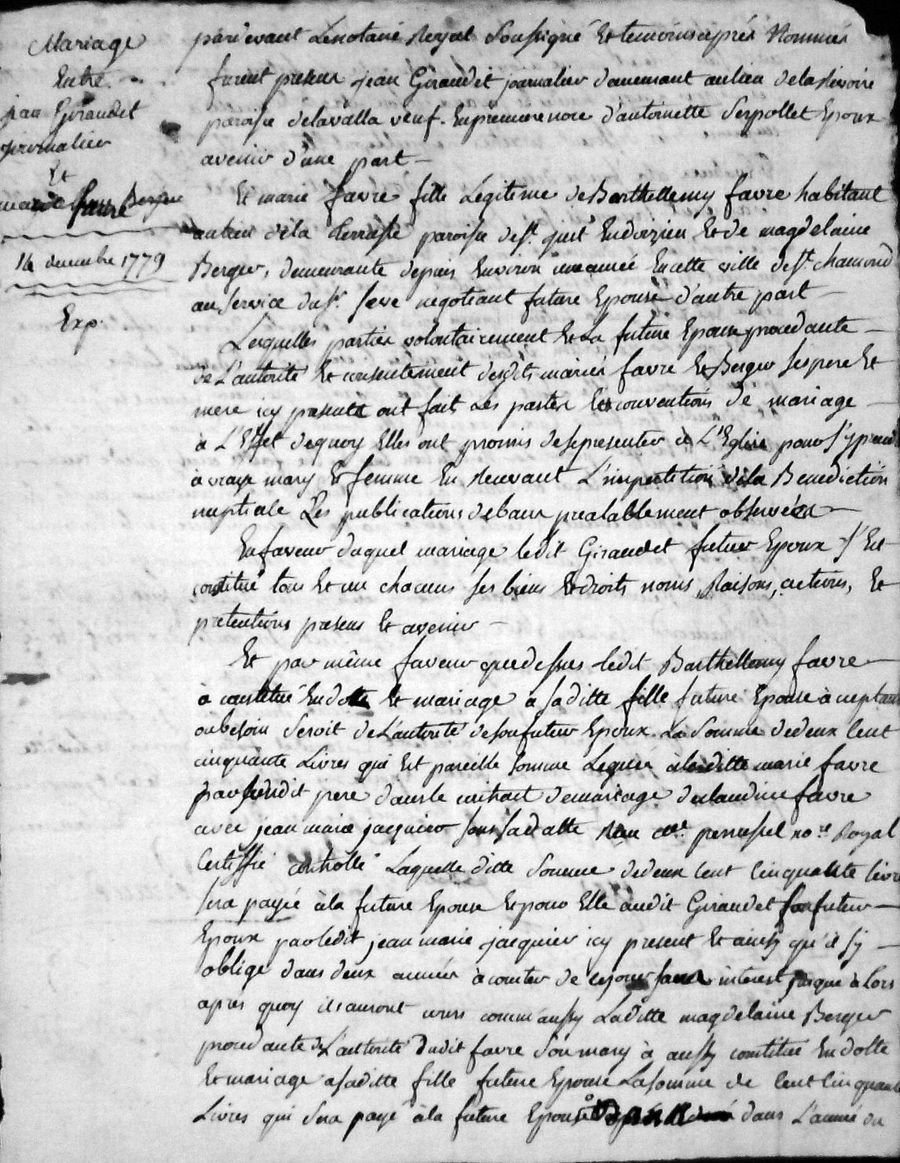 Mariage
Entre
jean Giraudet
journalier
Et
marie favre
14 decembre 1779
Exp.
pardevant Le notaire Royal Soussigné Et temoins aprés Nommés
furent presens jean Giraudet journalier demeurant au lieu de la Rivoire
paroisse de lavalla veuf En premiere noce d'antoinette Serpollet Epoux
avenir d'une part
Et marie favre fille Legitime de Barthellemy favre habitant
au lieu de la terrasse paroisse de st. just En doizieu Et de magdelaine
Berger, demeurante depuis Environ une année En cette ville de St. chamond
au Service du sr. seve negotiant future Epouse d'autre part
Lesquelles parties volontairement Et La future Epouse procedante
de L'autorité Et consentement desdits mariés favre Et Berger ses pere Et
mere icy presents ont fait les pactes Et conventions de mariage
à L'Effet de quoy Elles ont promis de se presenter à L'Eglise pour s'y prendre
à vrays mary Et femme En Recevant L'impertition de la Benediction
nuptiale Les publications de bans prealablement observées
En faveur duquel mariage ledit Giraudet futur Epoux s'Est
constitué tous Et un chacuns ses biens Et droits noms, Raisons, actions, Et
pretentions presens Et avenir
Et par même faveur que dessus ledit Barthellemy favre
à constitué En dotte Et mariage a saditte fille future Epouse acceptante
ou besoin Seroit de L'autorité de son futur Epoux La Somme de deux Cent
cinquante Livres qui Est pareille Somme Leguée à laditte marie favre
par sondit pere dans le contract de mariage de claudine favre
avec jean marie jacquier sous sa datte Receu me. no.re Royal
Certiffié controllé Laquelle ditte Somme de deux Cent Cinquante livres
sera payée à la future Epouse Et pour Elle audit Giraudet son futur
Epoux par ledit jean marie jacquier icy present Et ainsy qu'il s'y
oblige dans deux années à conter de ce jour sans interest jusque à lors
apres quoy ils auront cours comm'aussy Laditte magdelaine Berger
procedante de L'autorité dudit favre Son mary à aussy constitué En dotte
Et mariage asaditte fille future Epouse La somme de Cent cinquante
Livres qui sera payé à la future Epouse dans L'année du